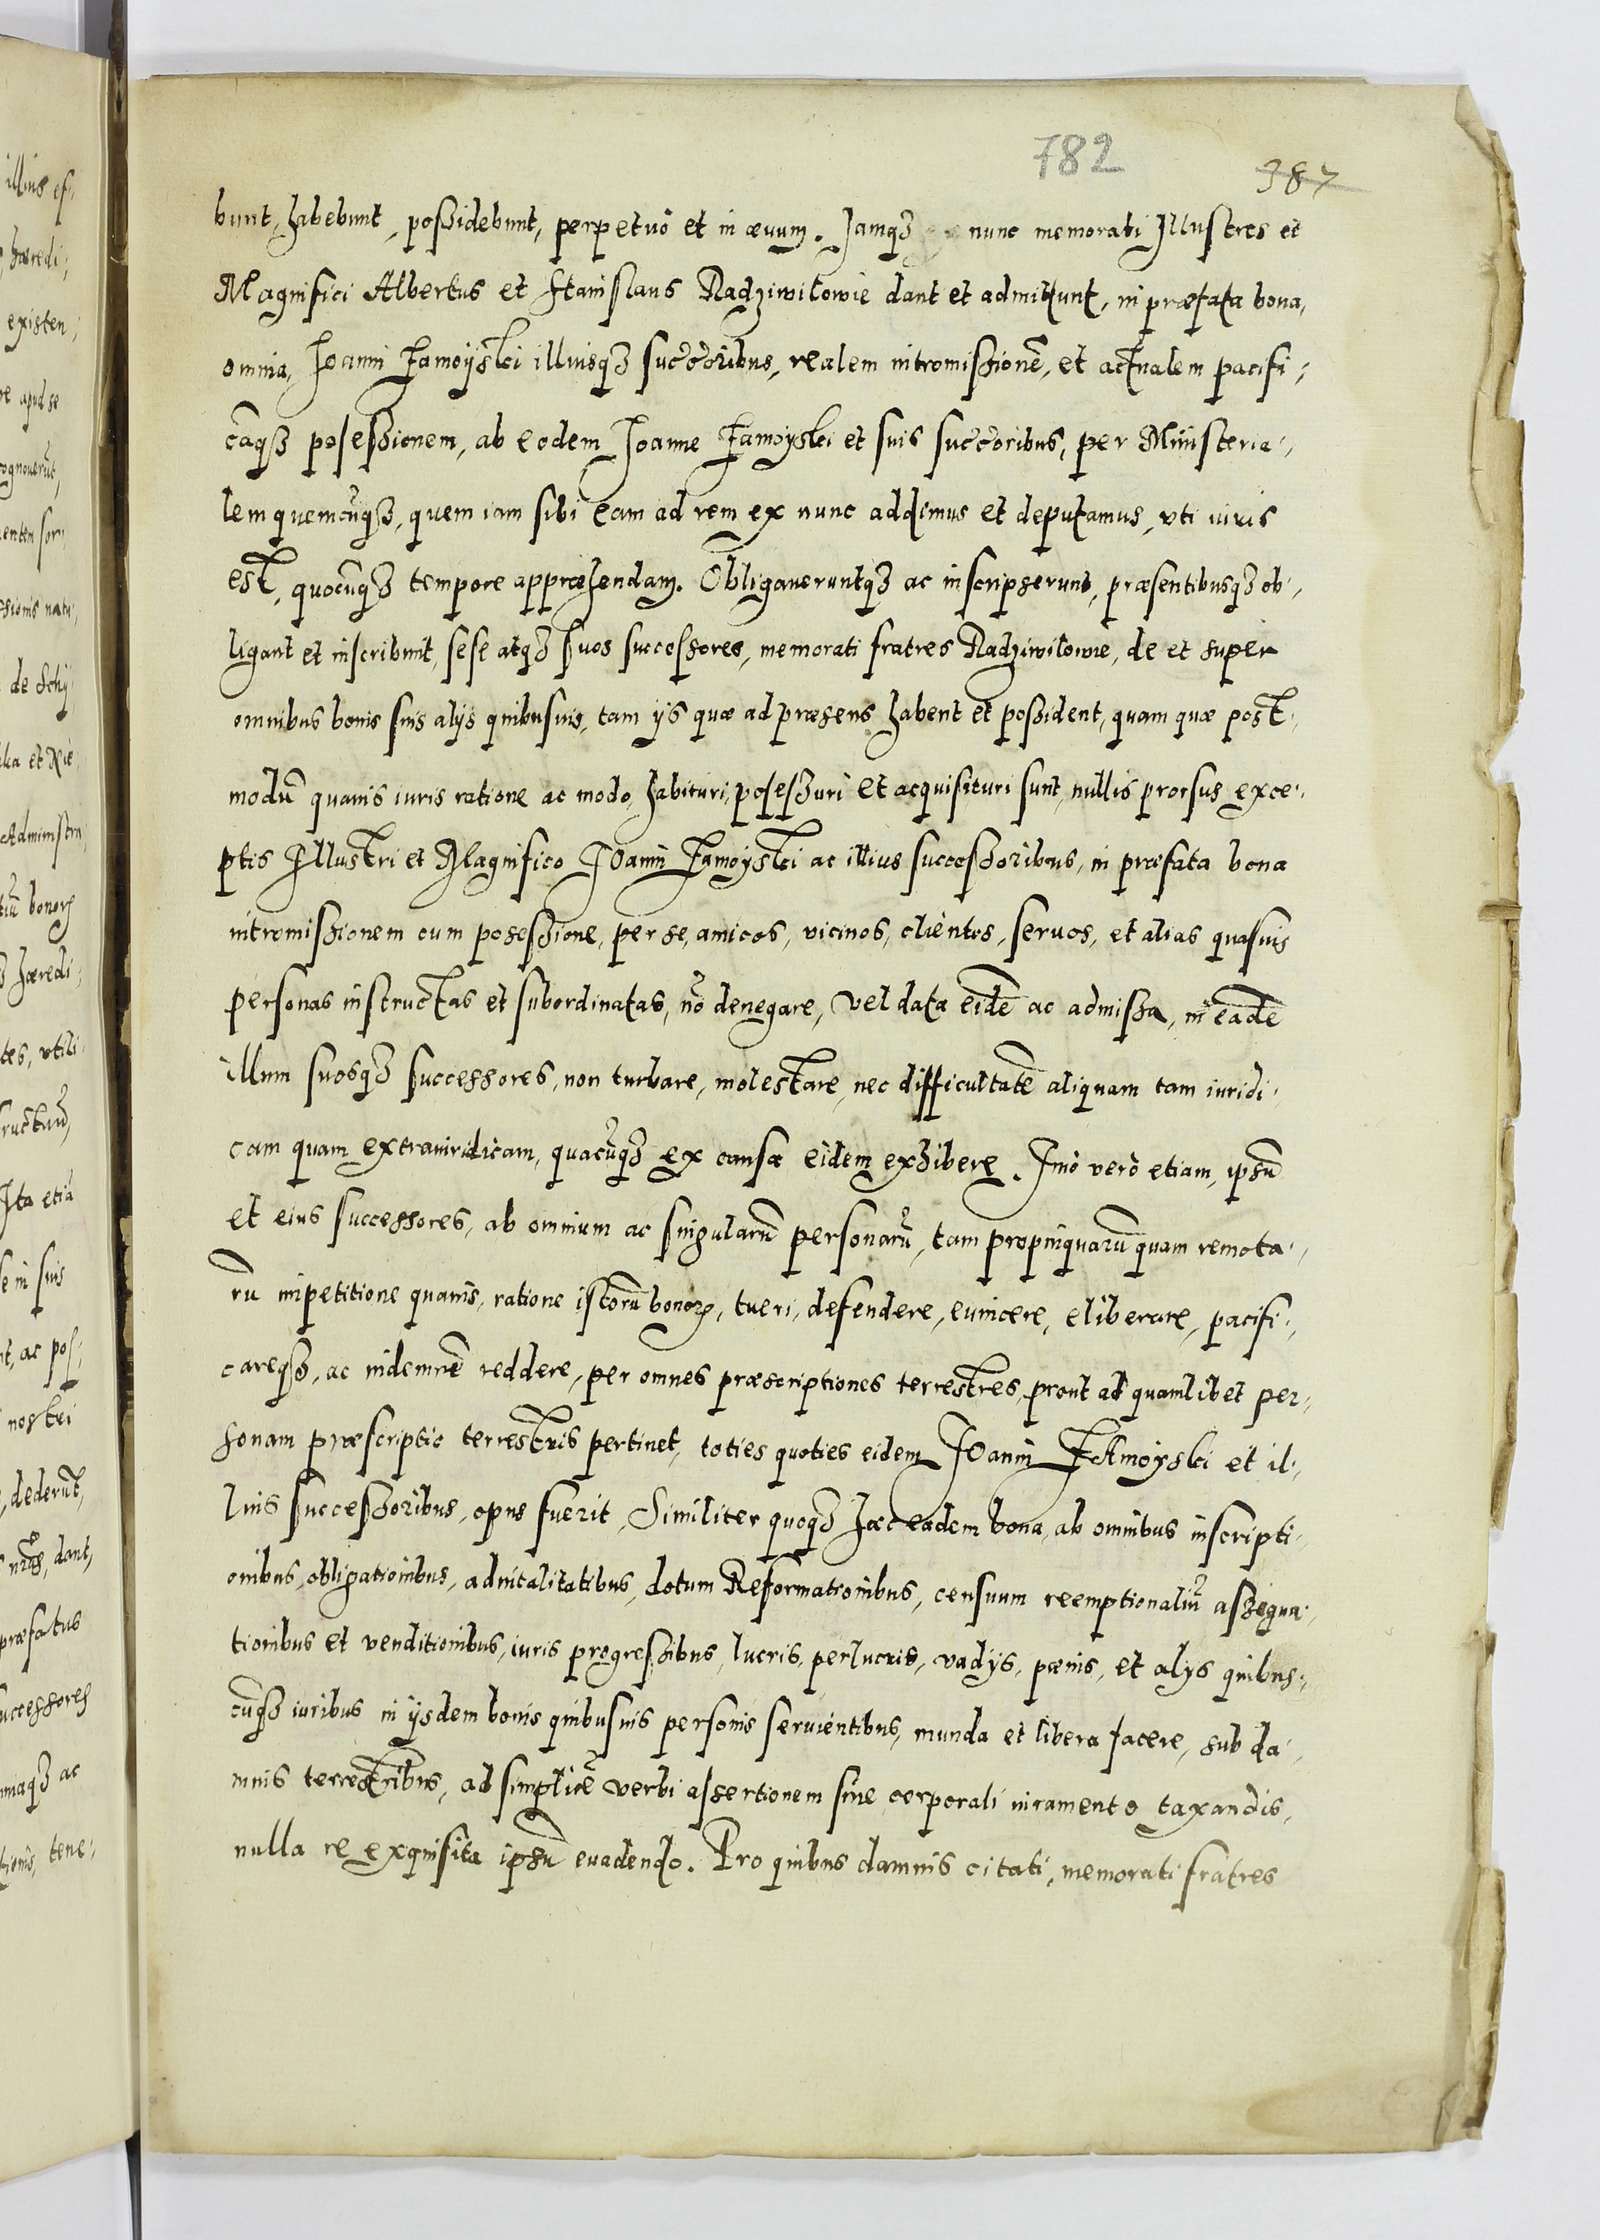 782
387
bunt, habebunt, possidebunt, perpetuò et in ævum. Jamqʒ nunc memorati Illustres et
Magnifici Albertus et Stanislaus Radziwilowie dant et admittunt, in præfata bona,
omnia, Joanni Zamoyski illiusqʒ succ̃coribus, realem intromissionē, et actualem pacifi-
cāqʒ possessionem, ab eodem Joanne Zamoyski et suis succ̃coribus, per Ministeria-
lem quemcūqʒ, quem iam sibi eam ad rem ex nunc addimus et deputamus, vti iuris
est, quocūqʒ tempore appræhendam. Obligaveruntqʒ ac inscripserunt, præsentibusqʒ ob-
ligant et inscribunt, sese atqʒ suos successores, memorati fratres Radziwilowie, de et super
omnibus bonis suis alijs quibusuis, tam ijs quæ ad præsens habent et possident, quam quæ post-
modū quauis iuris ratione ac modo, habituri, possessuri et acquisituri sunt, nullis prorsus exce-
ptis Illustri et Magnifico Joanni Zamoyski ac illius successoribus, in præfata bona
intromissionem cum possessione, per se, amicos, vicinos, clientes, seruos, et alias quasuis
personas instructas et subordinatas, nō denegare, vel data eidē ac admissa, in eādē
illum suosqʒ successores, non turbare, molestare, nec difficultatē aliquam tam iuridi-
cam quam extraiuridicam, quacūqʒ ex causa eidem exhibere. Imò verò etiam, ipsū
et eius successores, ab omnium ac singularū personarū, tam propinquarū quam remota-
rū impetitione quauis, ratione istorū bonoꝝ, tueri, defendere, euincere, eliberare, pacifi-
careqʒ, ac indemnē reddere, per omnes præscriptiones terrestres, prout ad quamlibet per-
sonam præscriptio terrestris pertinet, toties quoties eidem Joanni Zamoyski et il-
lius successoribus, opus fuerit. Similiter quoqʒ hæc eadem bona, ab omnibus inscripti-
onibus, obligationibus, aduitalitatibus, dotum Reformationibus, censuum reemptionaliū assequa-
tionibus et venditionibus, iuris progressibus, lucris, perlucris, vadijs, pænis, et alijs quibus-
cūqʒ iuribus in ijsdem bonis quibusuis personis seruientibus, munda et libera facere, sub da-
mnis terrestribus, ad simplicē verbi assertionem sine corporali iuramento taxandis,
nulla re exquisita ipsū euadendo. Pro quibus damnis citati, memorati fratres